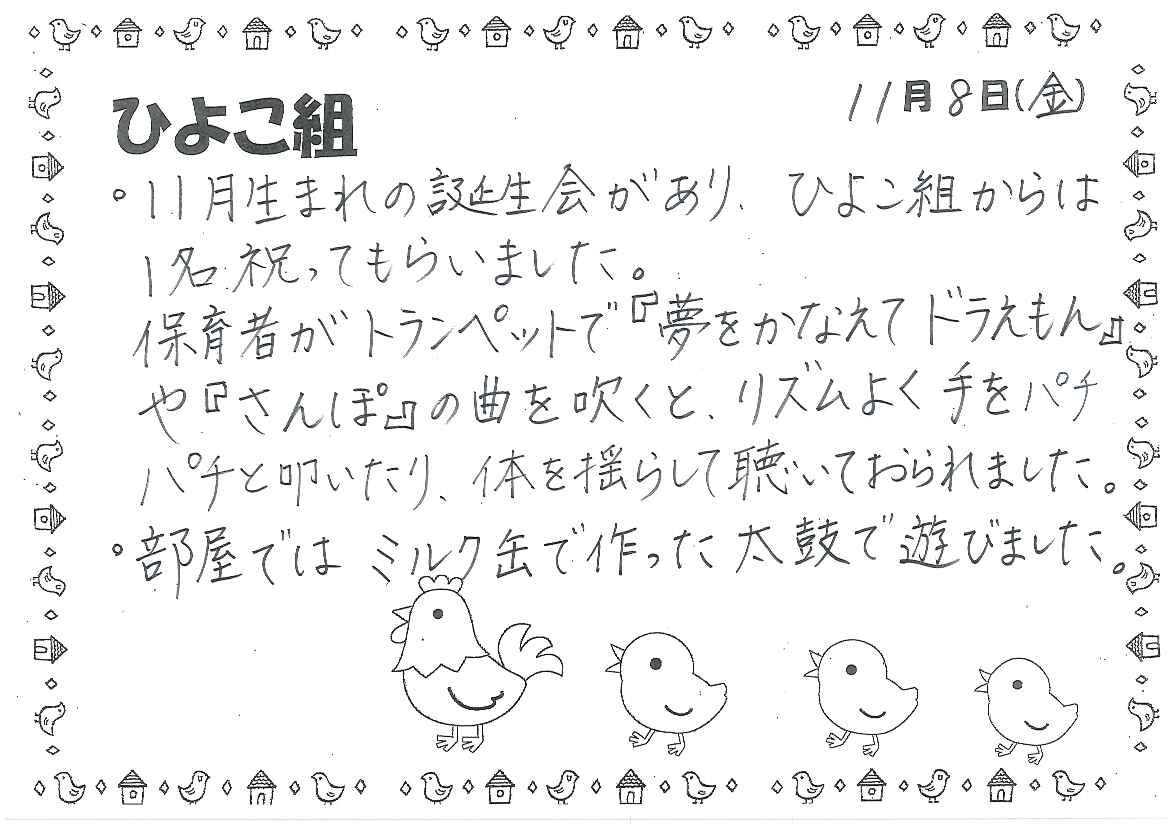 ひよこ組
11月8日(金)
。11月生まれの誕生会があり、ひよこ組からは
1名祝ってもらいました。
保育者がトランペットで『夢をかなえてドラえもん』
や『さんぽ』の曲を吹くと、リズムよく手をパチ
パチと叩いたり、体を揺らして聴いておられました。
。部屋ではミルク缶で作った太鼓で遊びました。